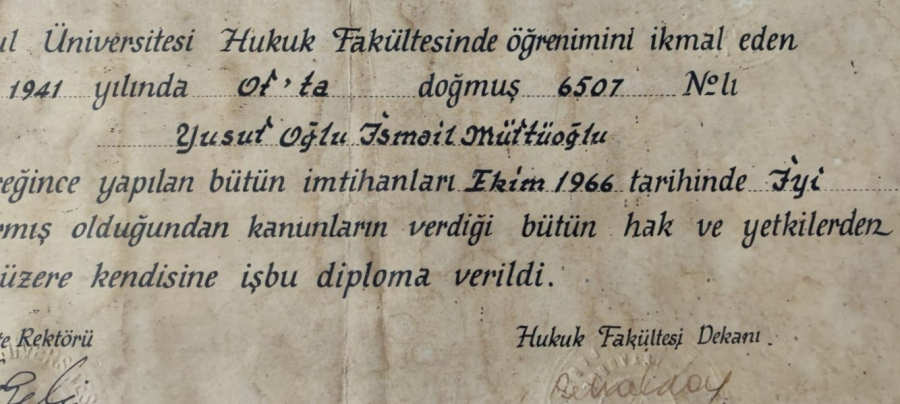 ul Üniversitesi Hukuk Fakültesinde öğrenimini ikmal eden
1941 yılında Of'ta doğmuş 6507 Nolı
Yusuf Oğlu İsmail Müftüoğlu
reğince yapılan bütün imtihanları Ekim 1966 tarihinde İyi
rmış olduğundan kanunların verdiği bütün hak ve yetkilerden
üzere kendisine işbu diploma verildi.
te Rektörü Hukuk Fakültesi Dekanı.